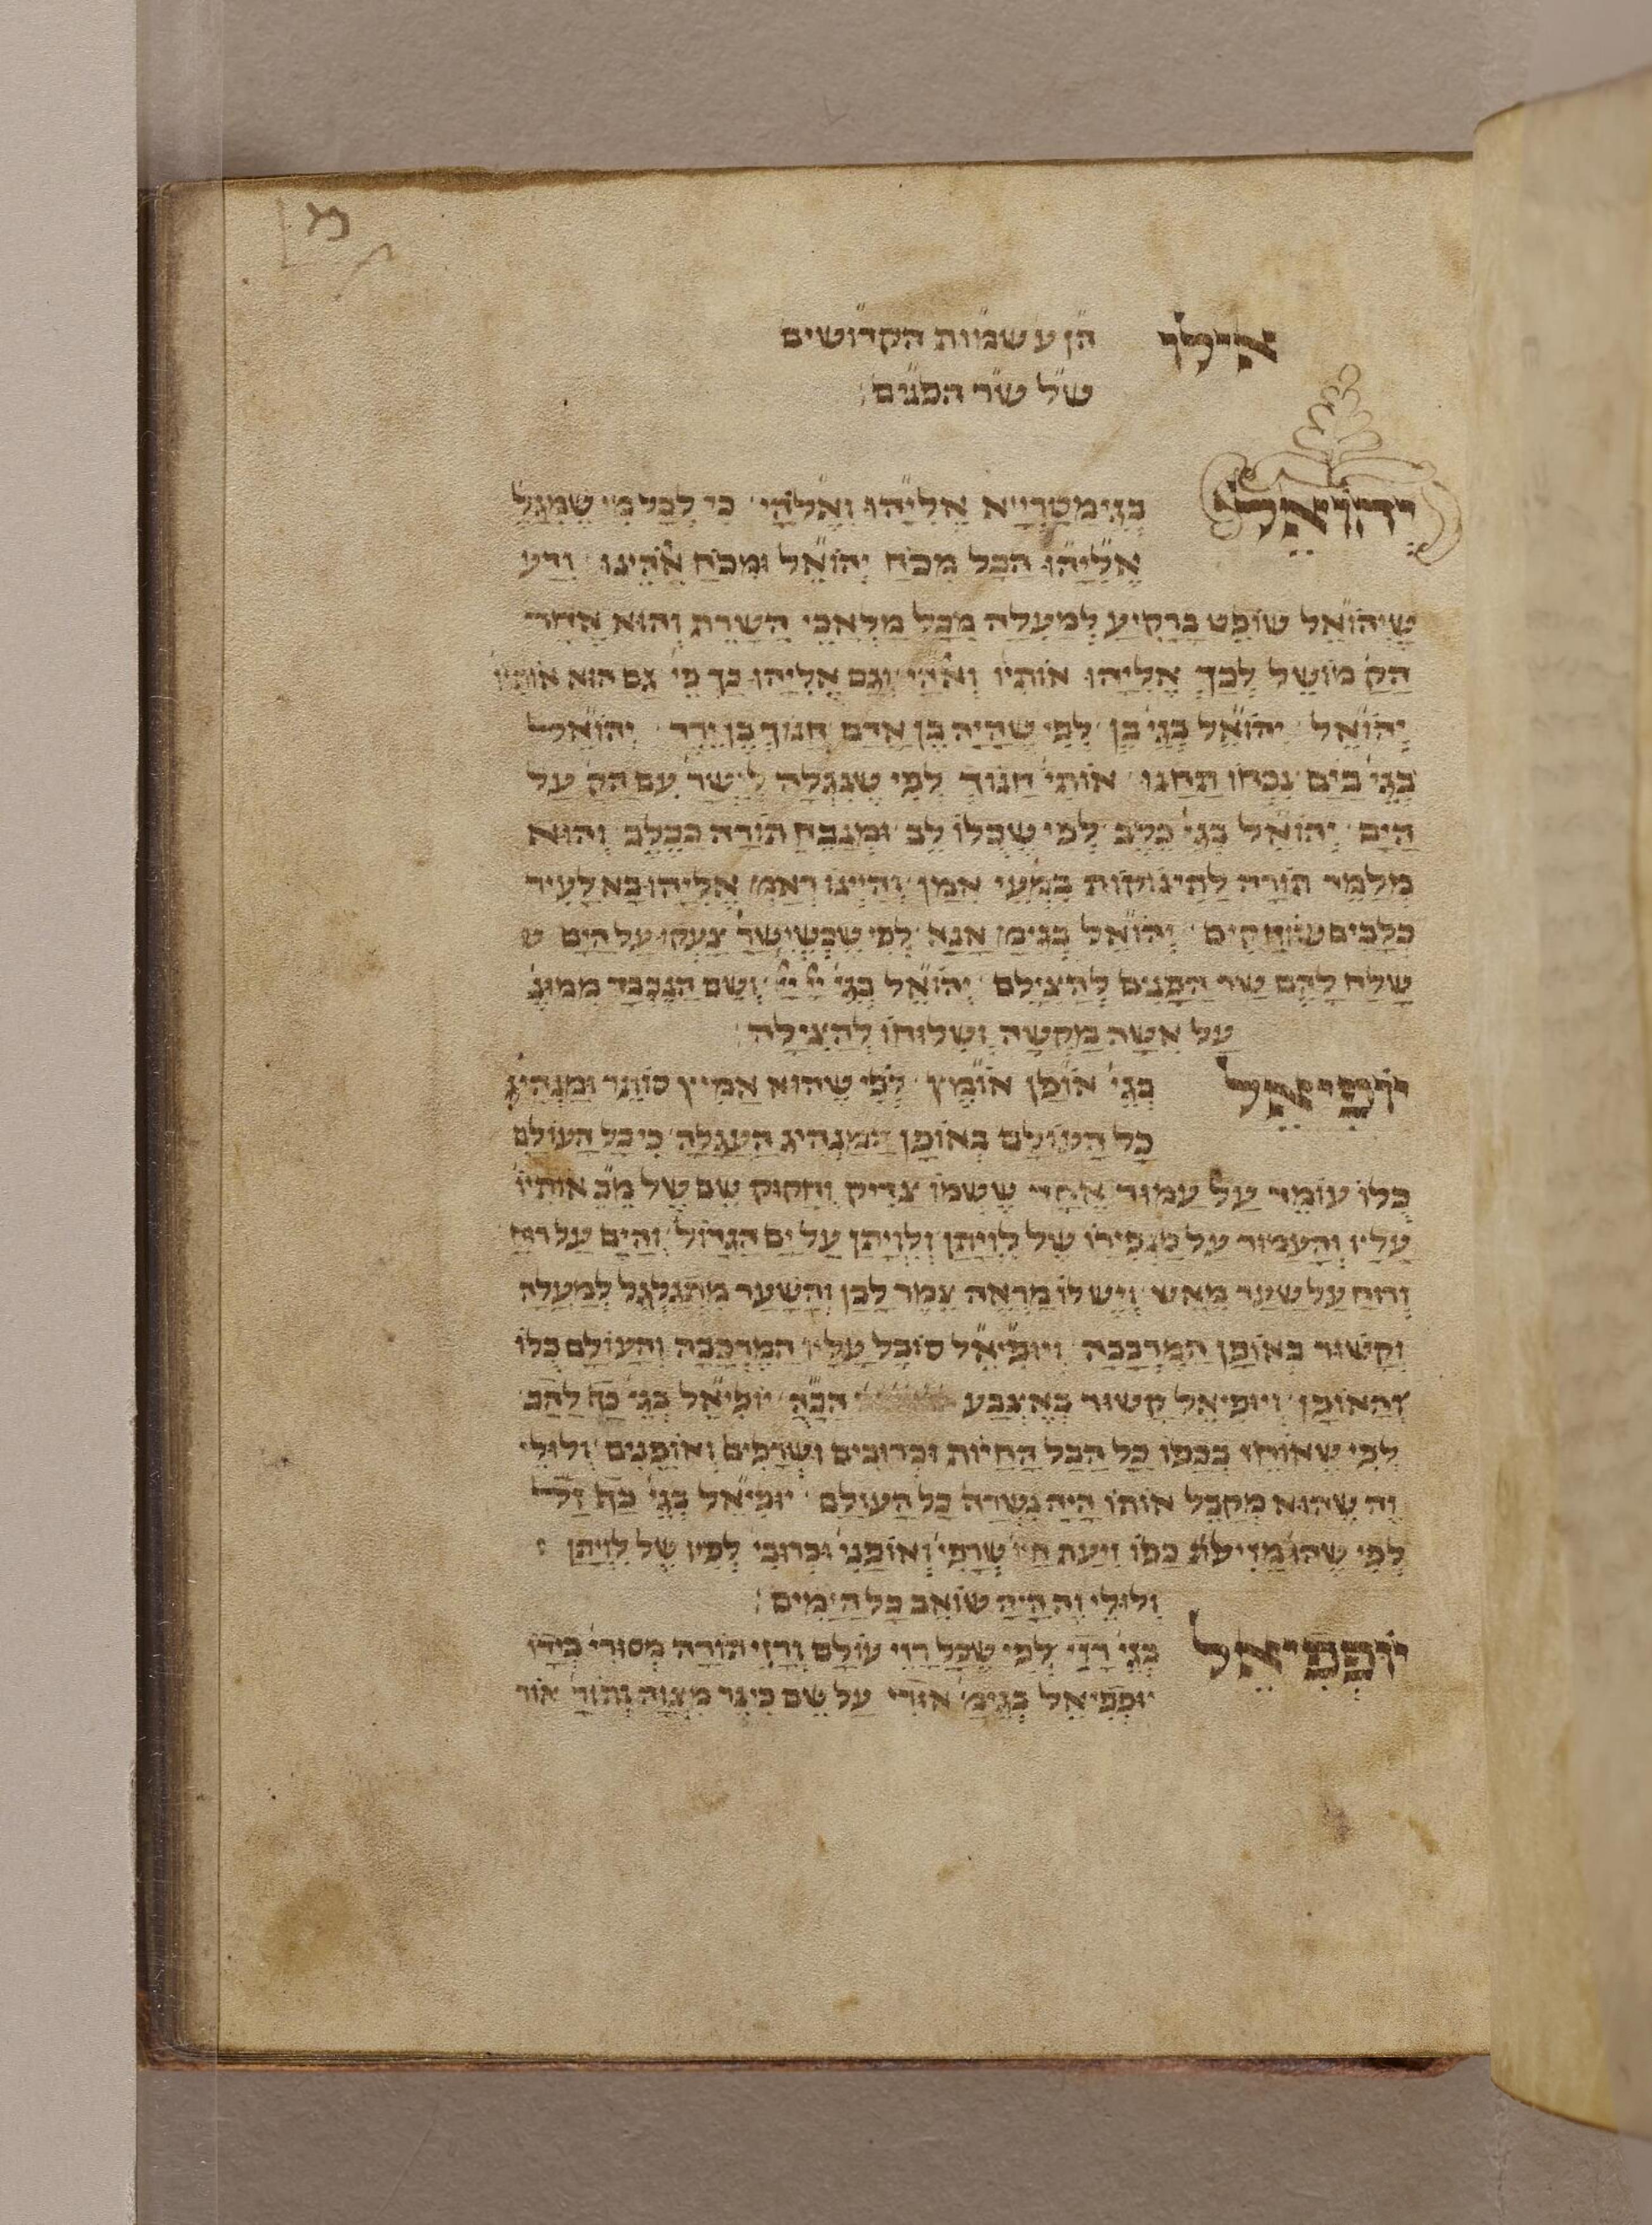 אילו הן ע שמות הקדושים
של שר הפנים:
יהואל בגימטרייא אליהו ואלהי כי לכל מי שמגל
אליהו הכל מכח יהואל ומכח אהינו ודע
שיהואל שופט ברקיע למעלה מכל מלאכי השרת והוא אחר
הק מושל לכך אליהו אותיו ואהי וגם אליהו כך כי גם הוא
יהואל יהואל בגי בן לפי שהיה בן אדם חנוך בן ירד יהואל
בגי בים נכחו תחנו אותי חנוך לפי שנגלה לישר עם הק על
הים יהואל בגי כלב לפי שכלו לב ומנבח תורה ככלב והוא
מלמד תורה לתינוקות במעי אמן והיינו דאמ אליהו בא לעיר
כלבים שוחקים יהואל בגימ אנא לפי שכשישר צעקו על הים
שלח להם שר הפנים להצילם יהואל בגי ושם הנכבד ממונ
על אשה מקשה ושלוחו להצילה
יופיאל בגי אופן אומץ לפי שהוא אמיץ סותר ומנהיג
כל העולם כאופן המנהיג העגלה כי כל העולם
כלו עומד על עמוד אחד ששמו צדיק וחקוק שם של מב אותיו
עליו והעמוד על סנפירו של לויתן ולויתן על ים הגדול והים על רוח
ורוח על שער מאש ויש לו מראה צמר לבן והשער מתגלגל למעלה
וקשור באופן המרכבה ויופיאל סובל עליו המרכבה והעולם כלו
והאופן ויופיאל קשור באצבע הבה יופיאל בגי
לפי שאוחז בכפו כל הכל החיות וכרובים ושרפים ואופנים ולולי
זה שהוא מקבל אותו היה נשרה כל העולם יופיאל בגי
לפי שהו כפו חי שרפי ואופני וכרובי לפיו של לויתן
ולולי זה היה שואב כל הימים:
יופפיאל בגי רזי לפי שכל רזי עולם ורזי תורה מסורי בידו
יופפיאל בגימ אורי על שם כי נר מצוה ותור אור